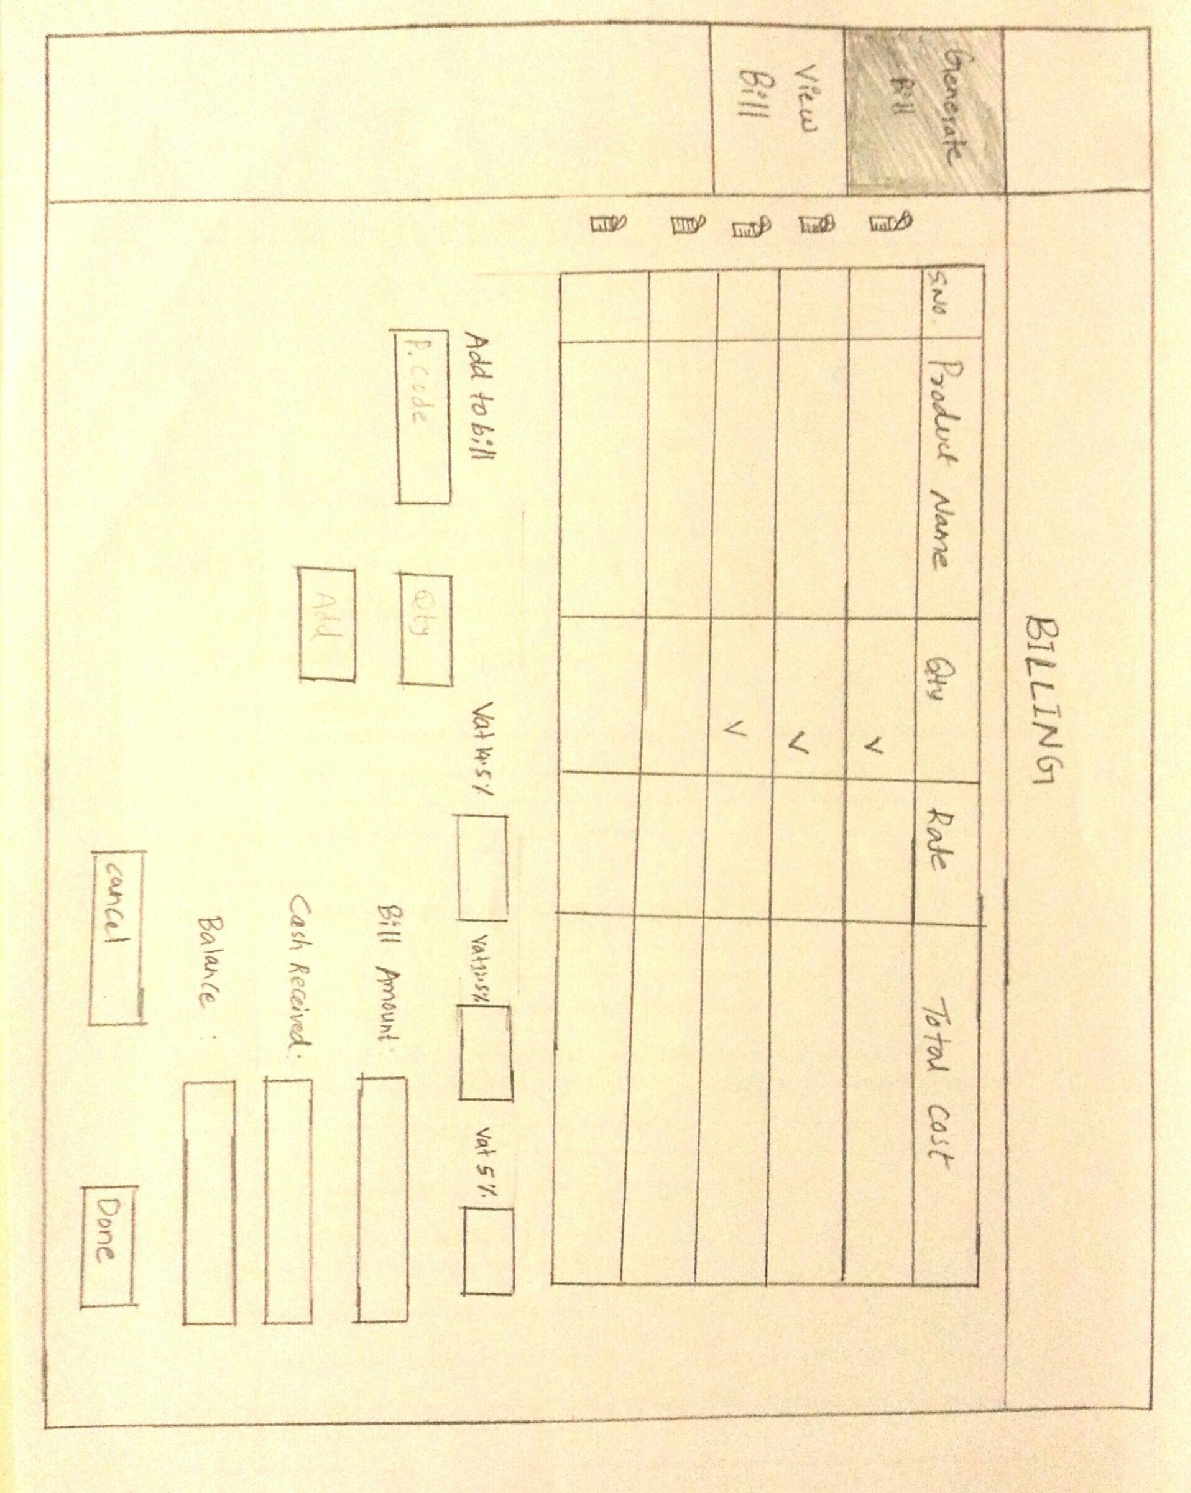 BILLING
Generate
Bill
View
Bill
S.No. Product Name Qty Rate Total Cost
Add to bill
P. code
Qty
Add
Vat 14.5%
Vat 12.5%
Vat 5%
Bill Amount:
Cash Received:
Balance :
Cancel
Done